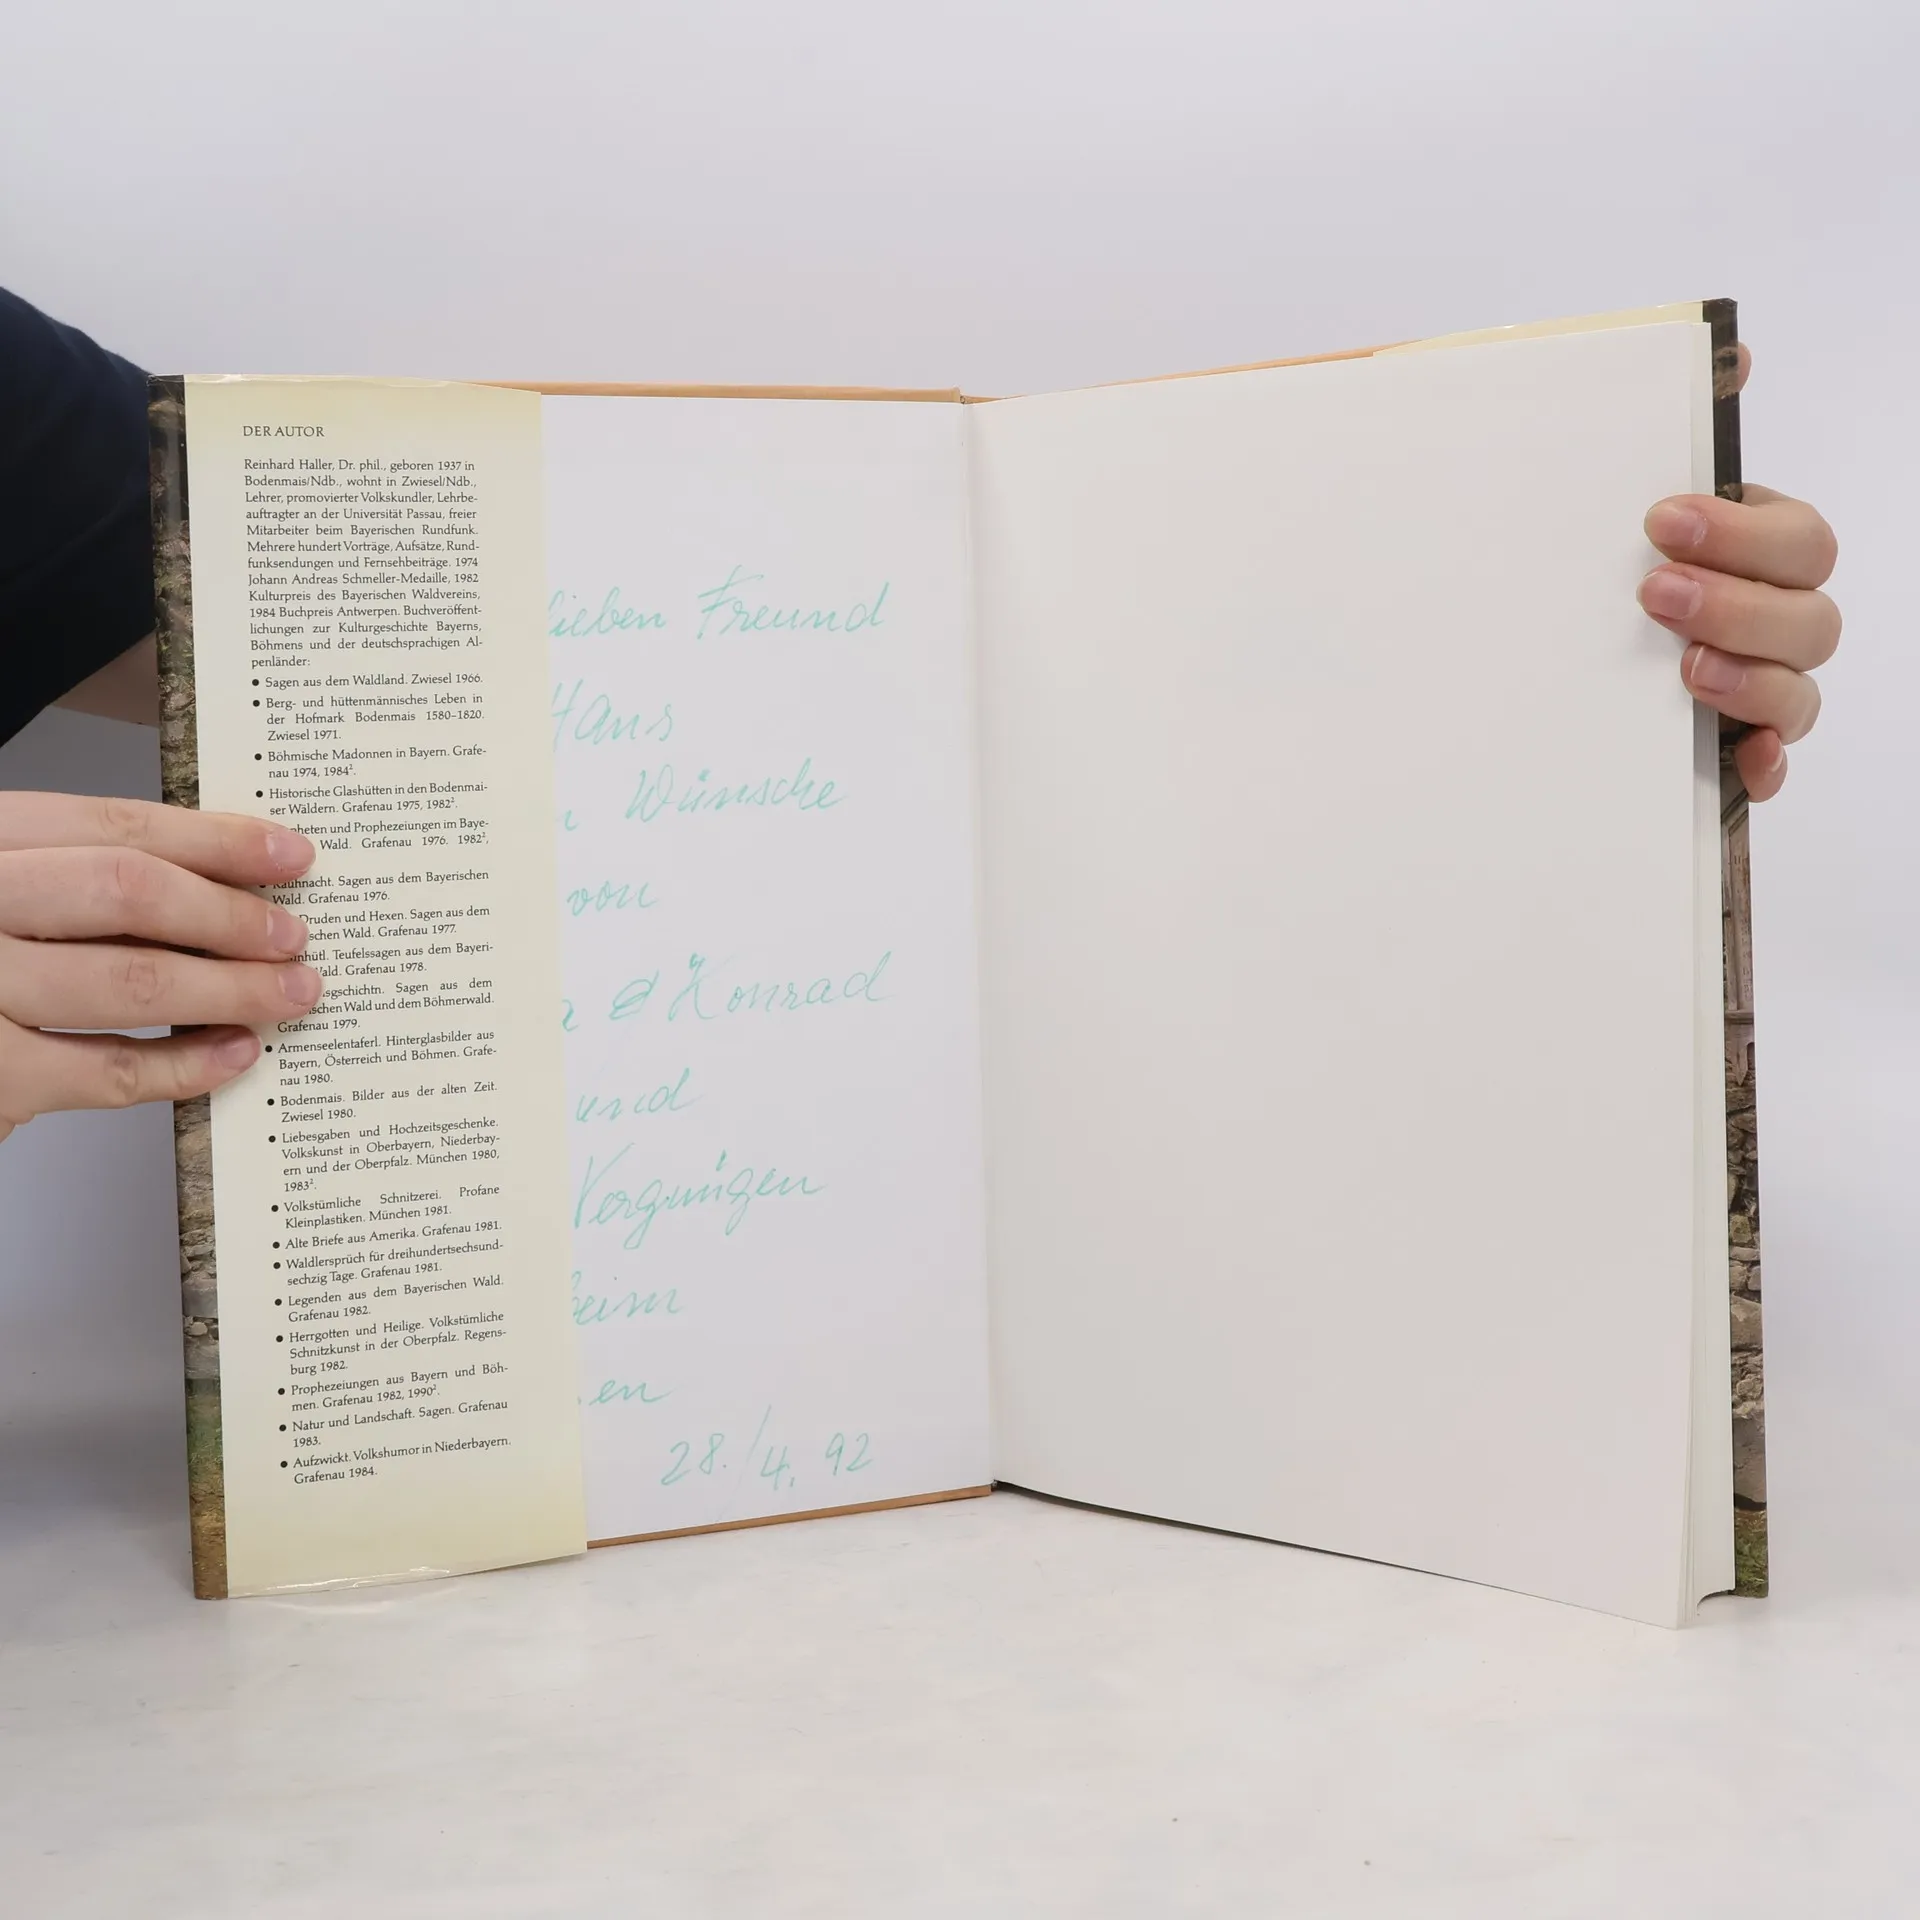 DER AUTOR
Reinhard Haller, Dr. phil., geboren 1937 in
Bodenmais/Ndb., wohnt in Zwiesel/Ndb.,
Lehrer, promovierter Volkskundler, Lehrbe-
auftragter an der Universität Passau, freier
Mitarbeiter beim Bayerischen Rundfunk.
Mehrere hundert Vorträge, Aufsätze, Rund-
funksendungen und Fernsehbeiträge. 1974
Johann Andreas Schmeller-Medaille, 1982
Kulturpreis des Bayerischen Waldvereins,
1984 Buchpreis Antwerpen. Buchveröffent-
lichungen zur Kulturgeschichte Bayerns,
Böhmens und der deutschsprachigen Al-
penländer:
● Sagen aus dem Waldland. Zwiesel 1966.
● Berg- und hüttenmännisches Leben in
der Hofmark Bodenmais 1580–1820.
Zwiesel 1971.
● Böhmische Madonnen in Bayern. Grafe-
nau 1974, 1984².
● Historische Glashütten in den Bodenmai-
ser Wäldern. Grafenau 1975, 1982².
pheten und Prophezeiungen im Baye-
Wald. Grafenau 1976. 1982²,
● Rauhnacht. Sagen aus dem Bayerischen
Wald. Grafenau 1976.
Druden und Hexen. Sagen aus dem
schen Wald. Grafenau 1977.
nhütl. Teufelssagen aus dem Bayeri-
Wald. Grafenau 1978.
sgschichtn. Sagen aus dem
schen Wald und dem Böhmerwald.
Grafenau 1979.
● Armenseelentaferl. Hinterglasbilder aus
Bayern, Österreich und Böhmen. Grafe-
nau 1980.
● Bodenmais. Bilder aus der alten Zeit.
Zwiesel 1980.
● Liebesgaben und Hochzeitsgeschenke.
Volkskunst in Oberbayern, Niederbay-
ern und der Oberpfalz. München 1980,
1983².
● Volkstümliche Schnitzerei. Profane
Kleinplastiken. München 1981.
● Alte Briefe aus Amerika. Grafenau 1981.
● Waldlersprüch für dreihundertsechsund-
sechzig Tage. Grafenau 1981.
● Legenden aus dem Bayerischen Wald.
Grafenau 1982.
● Herrgotten und Heilige. Volkstümliche
Schnitzkunst in der Oberpfalz. Regens-
burg 1982.
● Prophezeiungen aus Bayern und Böh-
men. Grafenau 1982, 1990².
● Natur und Landschaft. Sagen. Grafenau
1983.
● Aufzwickt. Volkshumor in Niederbayern.
Grafenau 1984.
lieben Freund
Hans
Wünsche
von
& Konrad
und
Vergnügen
beim
en
28./4. 92